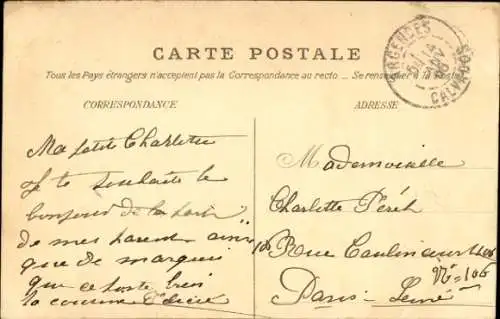 CARTE POSTALE
Tous les Pays étrangers n'acceptent pas la Correspondance au recto ... Se renseigner à la Poste
CORRESPONDANCE
ADRESSE
ARGENCES
CALVADOS
Ma petite Charlotte
Je te souhaite le
bonjour de la part
de mes parent ainsi
que de
que ce porte bien
la
Mademoiselle
Charlotte
Rue Caulincourt 106
N°=106
Paris = Seine